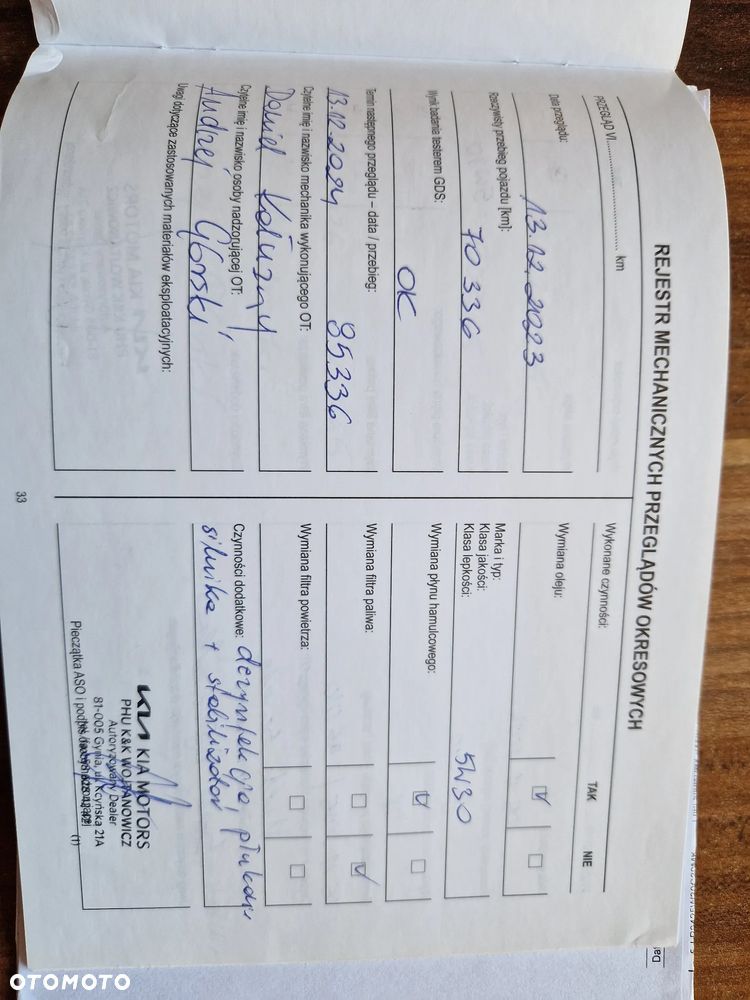 REJESTR MECHANICZNYCH PRZEGLĄDÓW OKRESOWYCH
PRZEGLĄD VI.............................. km
Data przeglądu:
13.12.2023
Rzeczywisty przebieg pojazdu [km]:
70 336
Wynik badania testerem GDS:
OK
Termin następnego przeglądu – data / przebieg:
13.12.2024 85336
Czytelne imię i nazwisko mechanika wykonującego OT:
Daniel
Czytelne imię i nazwisko osoby nadzorującej OT:
Andrzej Górski
Uwagi dotyczące zastosowanych materiałów eksploatacyjnych:
Wykonane czynności: TAK NIE
Wymiana oleju:
Marka i typ:
Klasa jakości:
Klasa lepkości: 5W30
Wymiana płynu hamulcowego:
Wymiana filtra paliwa:
Wymiana filtra powietrza:
Czynności dodatkowe: dezynfekcja, płukan
silnika + stabilizator
KIA MOTORS
PHU K&K WOJTANOWICZ
Autoryzowany Dealer
81-005 Gdynia, ul. Kcyńska 21A
Pieczątka ASO i podpis
(1)
33
Dat
OTOMOTO